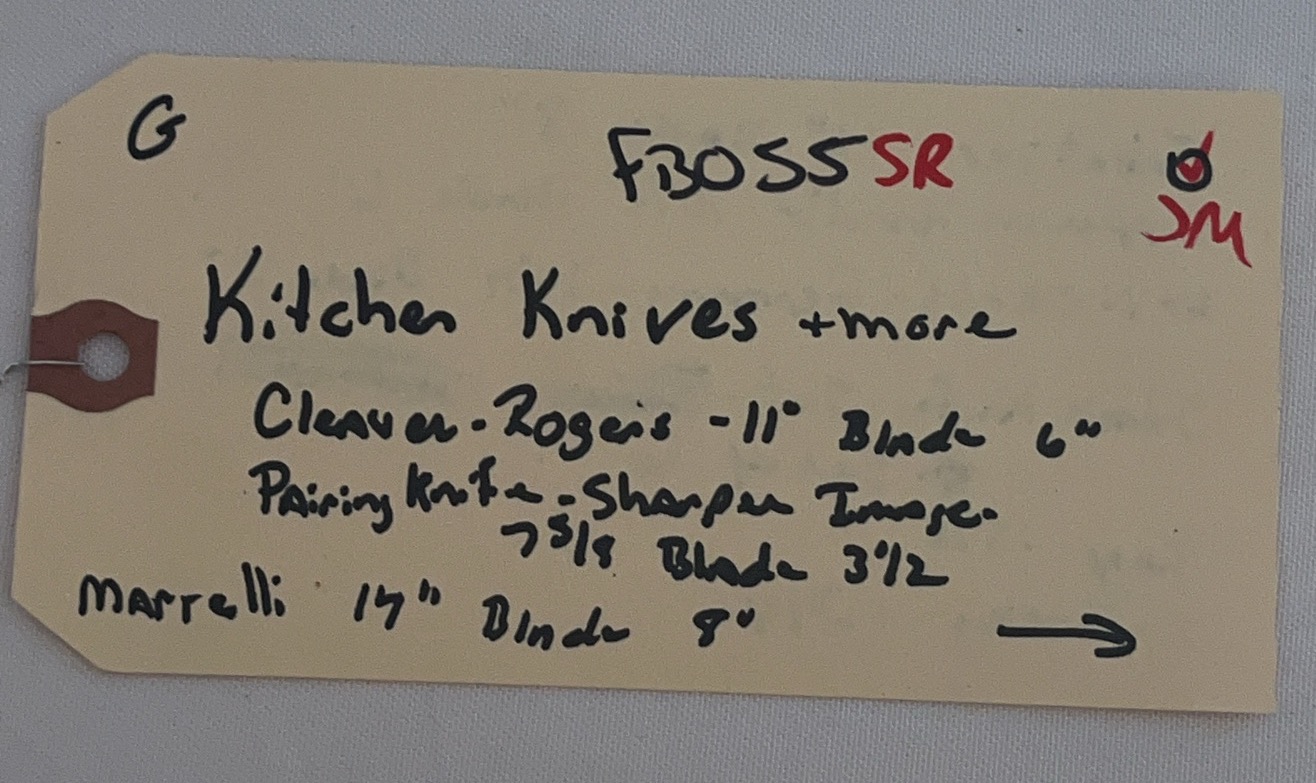 G
FB055SR
JM
Kitchen Knives +more
Cleaver - Rogers - 11" Blade 6"
Pairing Knife - Sharper Image -
7 5/8 Blade 3 1/2
Marrelli 14" Blade 8"
→